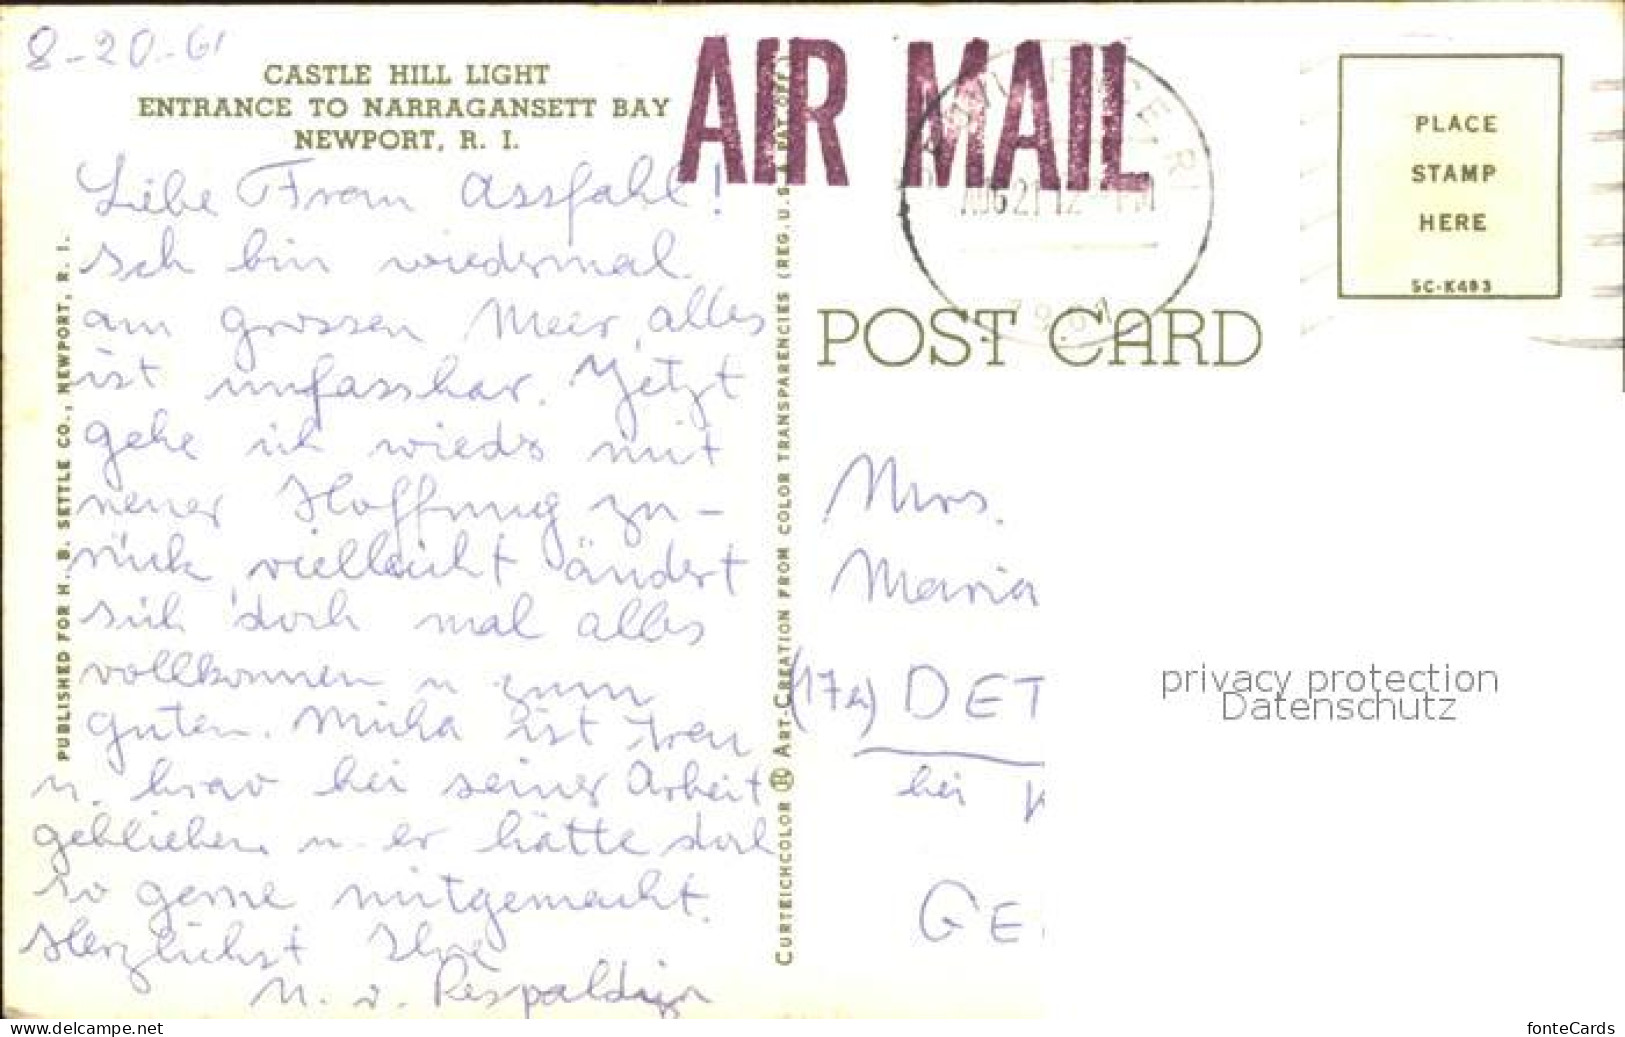 8-20-61
CASTLE HILL LIGHT
ENTRANCE TO NARRAGANSETT BAY
NEWPORT, R. I.
Liebe Frau Assfahl!
Ich bin wiedermal
am grossen Meer, alles
ist unfassbar. Jetzt
gehe ich wieder mit
neuer Hoffnung zu-
rück, vielleicht ändert
sich doch mal alles
vollkommen u zum
guten. Micha ist treu
u. brav bei seiner Arbeit
geblieben u. er hätte doch
so gerne mitgemacht.
Herzlichst Ihre
M. v.
PUBLISHED FOR H. B. SETTLE CO., NEWPORT, R. I.
CURTEICHCOLOR ® ART-CREATION FROM COLOR TRANSPARENCIES (REG. U.S.A. PAT. OFF.)
AIR MAIL
PROVIDENCE, R.I.
AUG 21 12 PM
1961
PLACE
STAMP
HERE
5C-K493
POST CARD
Mrs.
Maria
(17a) DET
bei
GE
privacy protection
Datenschutz
www.delcampe.net
fonteCards